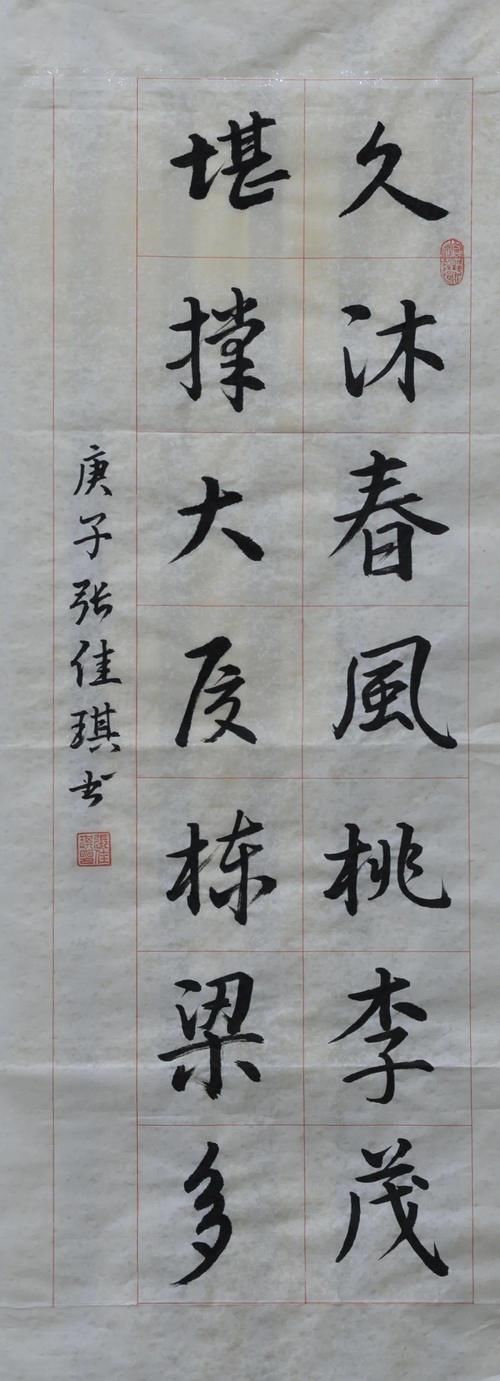 久沐春風桃李茂
堪撑大厦栋梁多
庚子张佳琪书